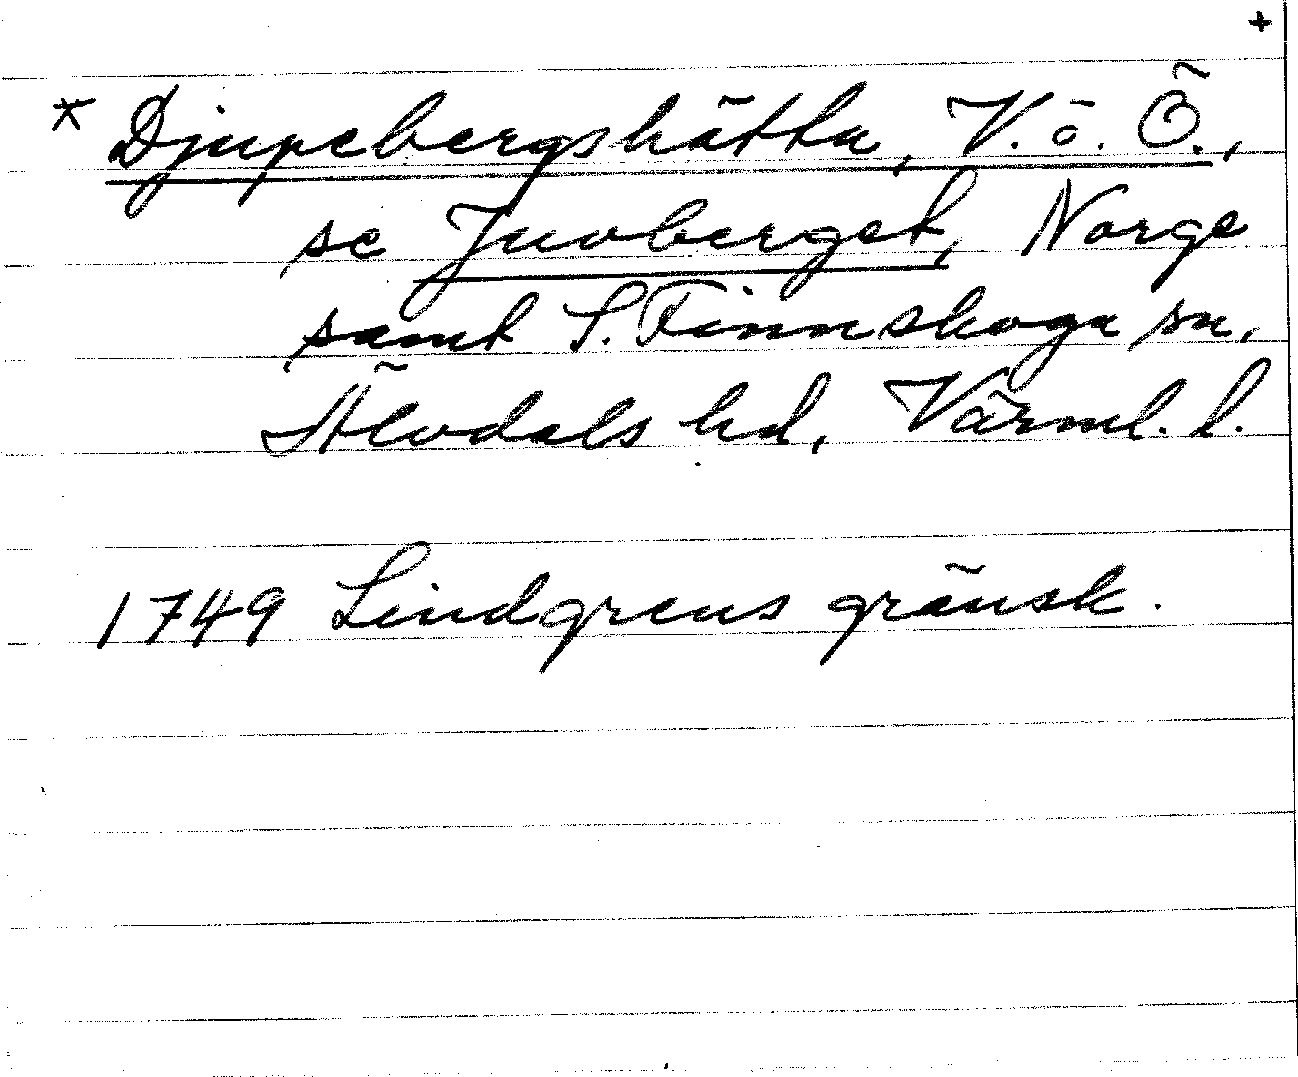 +
* Djupebergshätta, V. ö. Ö.,
se Juvberget, Norge
samt S. Finnskoga sn,
Älvdals hd, Värml. l.
1749 Lindgrens gränsk.